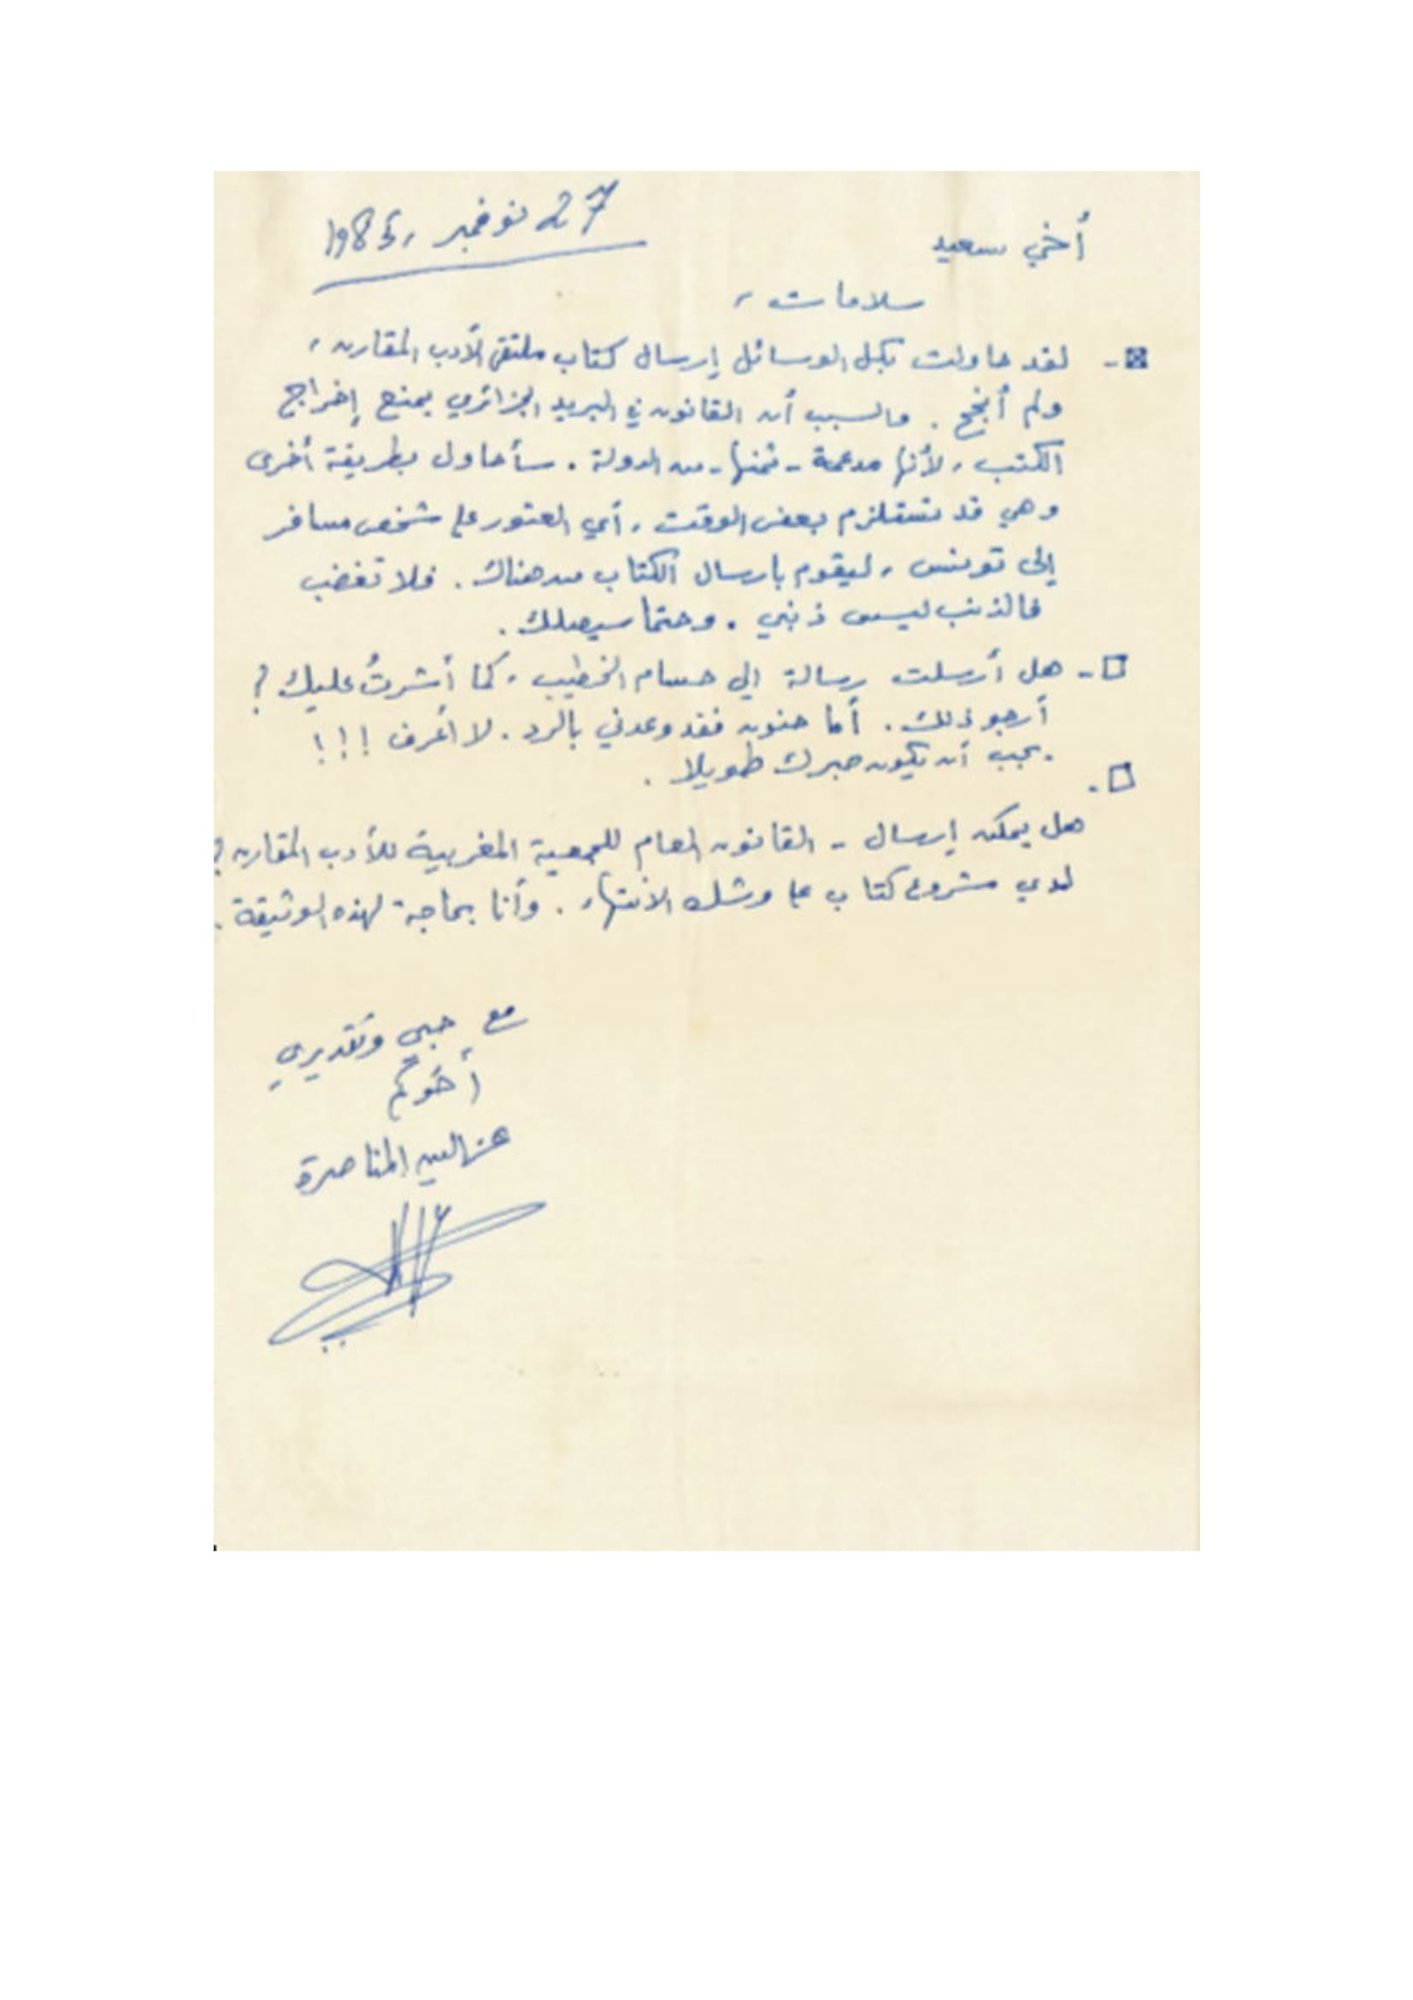 27 نوفمبر، 1985
أخي سعيد
سلامات،
- لقد حاولت بكل الوسائل إرسال كتاب ملتقى الأدب المقارن،
ولم أنجح. والسبب أن القانون في البريد الجزائري يمنع إخراج
الكتب، لأنها مدعمة - ثمنها - من الدولة. سأحاول بطريقة أخرى
وهي قد تستلزم بعض الوقت، أي العثور على شخص مسافر
إلى تونس، ليقوم بإرسال الكتاب من هناك. فلا تغضب
فالذنب ليس ذنبي. وحتما سيصلك.
- هل أرسلت رسالة إلى حسام الخطيب، كما أشرتُ عليك؟
أرجو ذلك. أما حنون فقد وعدني بالرد. لا أعرف!!!
يجب أن يكون صبرك طويلا.
هل يمكن إرسال - القانون العام للجمعية المغربية للأدب المقارن؟
لدي مشروع كتاب على وشك الانتهاء. وأنا بحاجة لهذه الوثيقة.
مع حبي وتقديري
أخوكم
عزالدين المناصرة